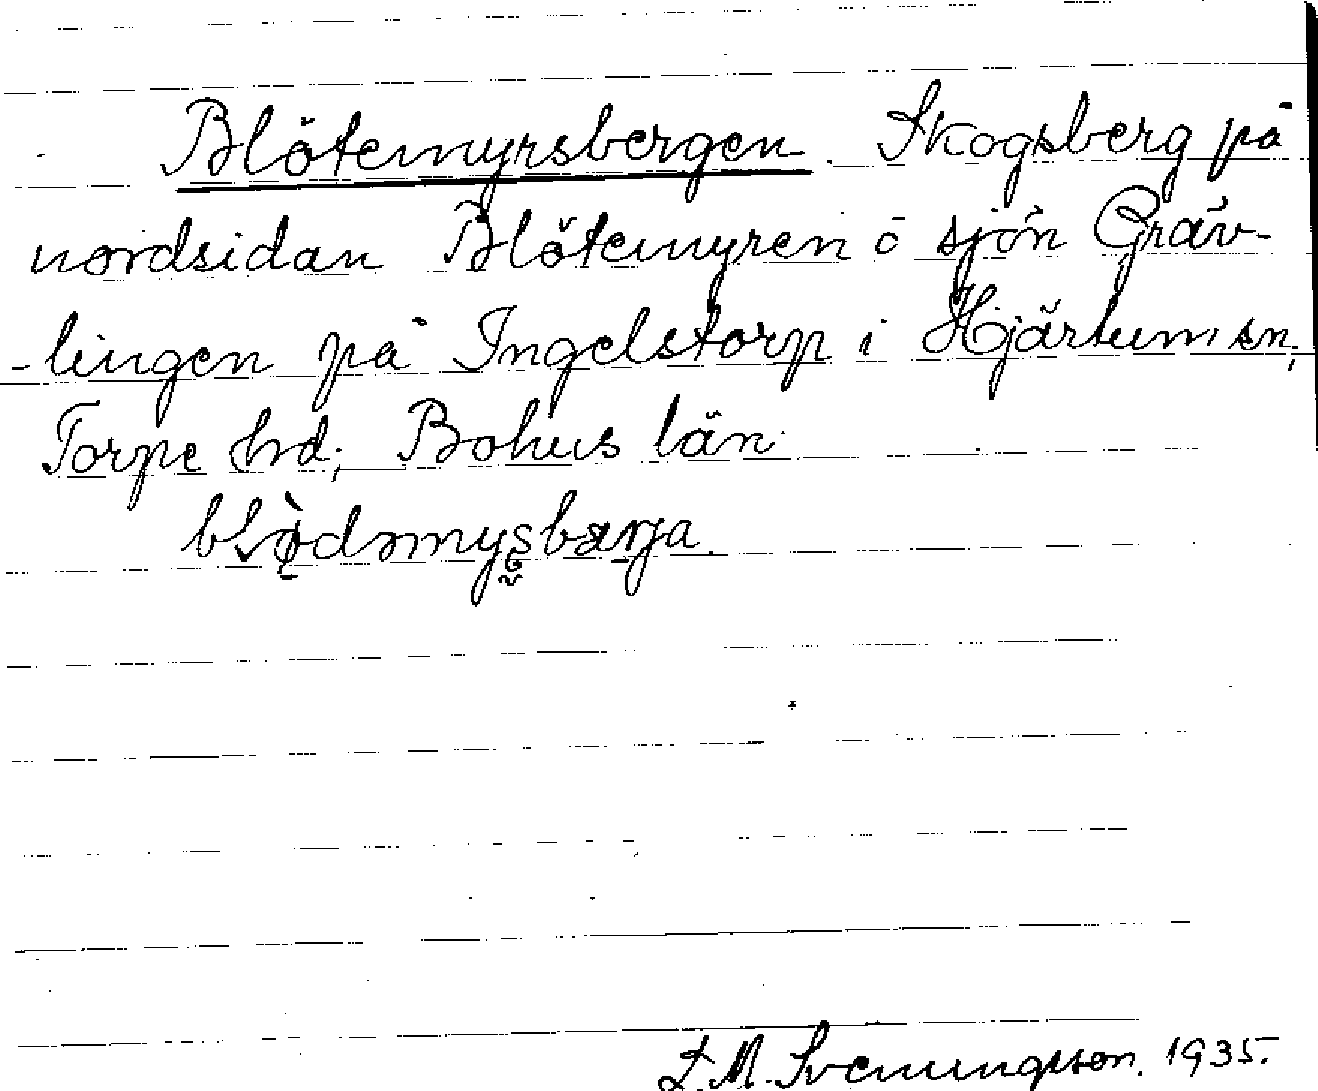 Blötemyrsbergen. Skogsberg på
nordsidan Blötemyren ö sjön Gräv-
-lingen på Ingelstorp i Hjärtum sn,
Torpe hd; Bohus län.
S. M. Svenungsson. 1935.